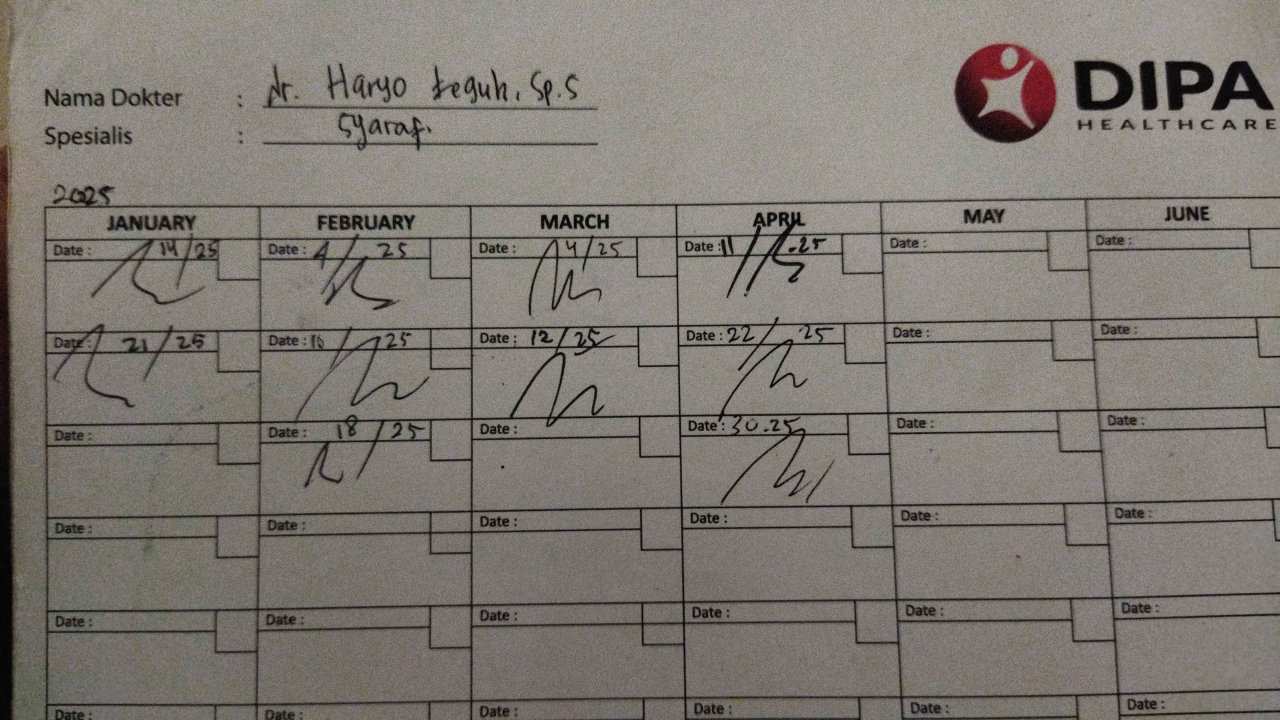 Nama Dokter : dr. Haryo teguh. Sp.S
Spesialis : Syaraf.
DIPA
HEALTHCARE
2025
JANUARY FEBRUARY MARCH APRIL MAY JUNE
Date : 14/25 Date : 4/25 Date : 4/25 Date : 11/.25 Date : Date :
Date : 21/25 Date : / 25 Date : 12/25 Date : 22/25 Date : Date :
Date : Date : 18/25 Date : Date : 30.25 Date : Date :
Date : Date : Date : Date : Date : Date :
Date : Date : Date : Date : Date : Date :
Date : Date : Date : Date : Date : Date :